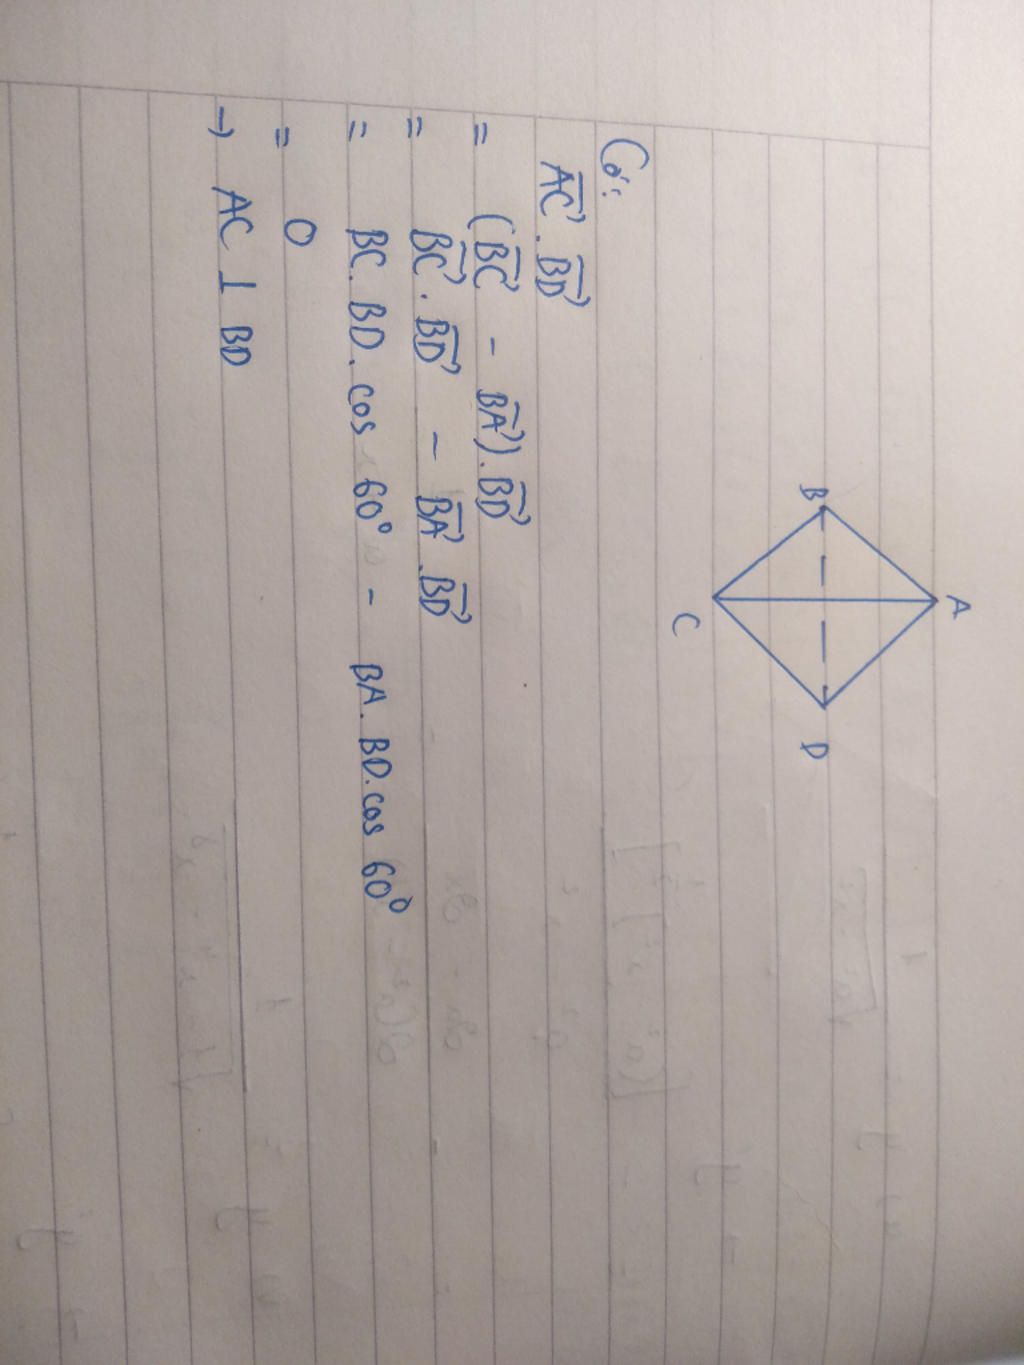 A
B
D
C
Có:
AC⃗ . BD⃗
= (BC⃗ - BA⃗) . BD⃗
= BC⃗ . BD⃗ - BA⃗ . BD⃗
= BC . BD . cos 60° - BA . BD . cos 60°
= 0
→ AC ⊥ BD